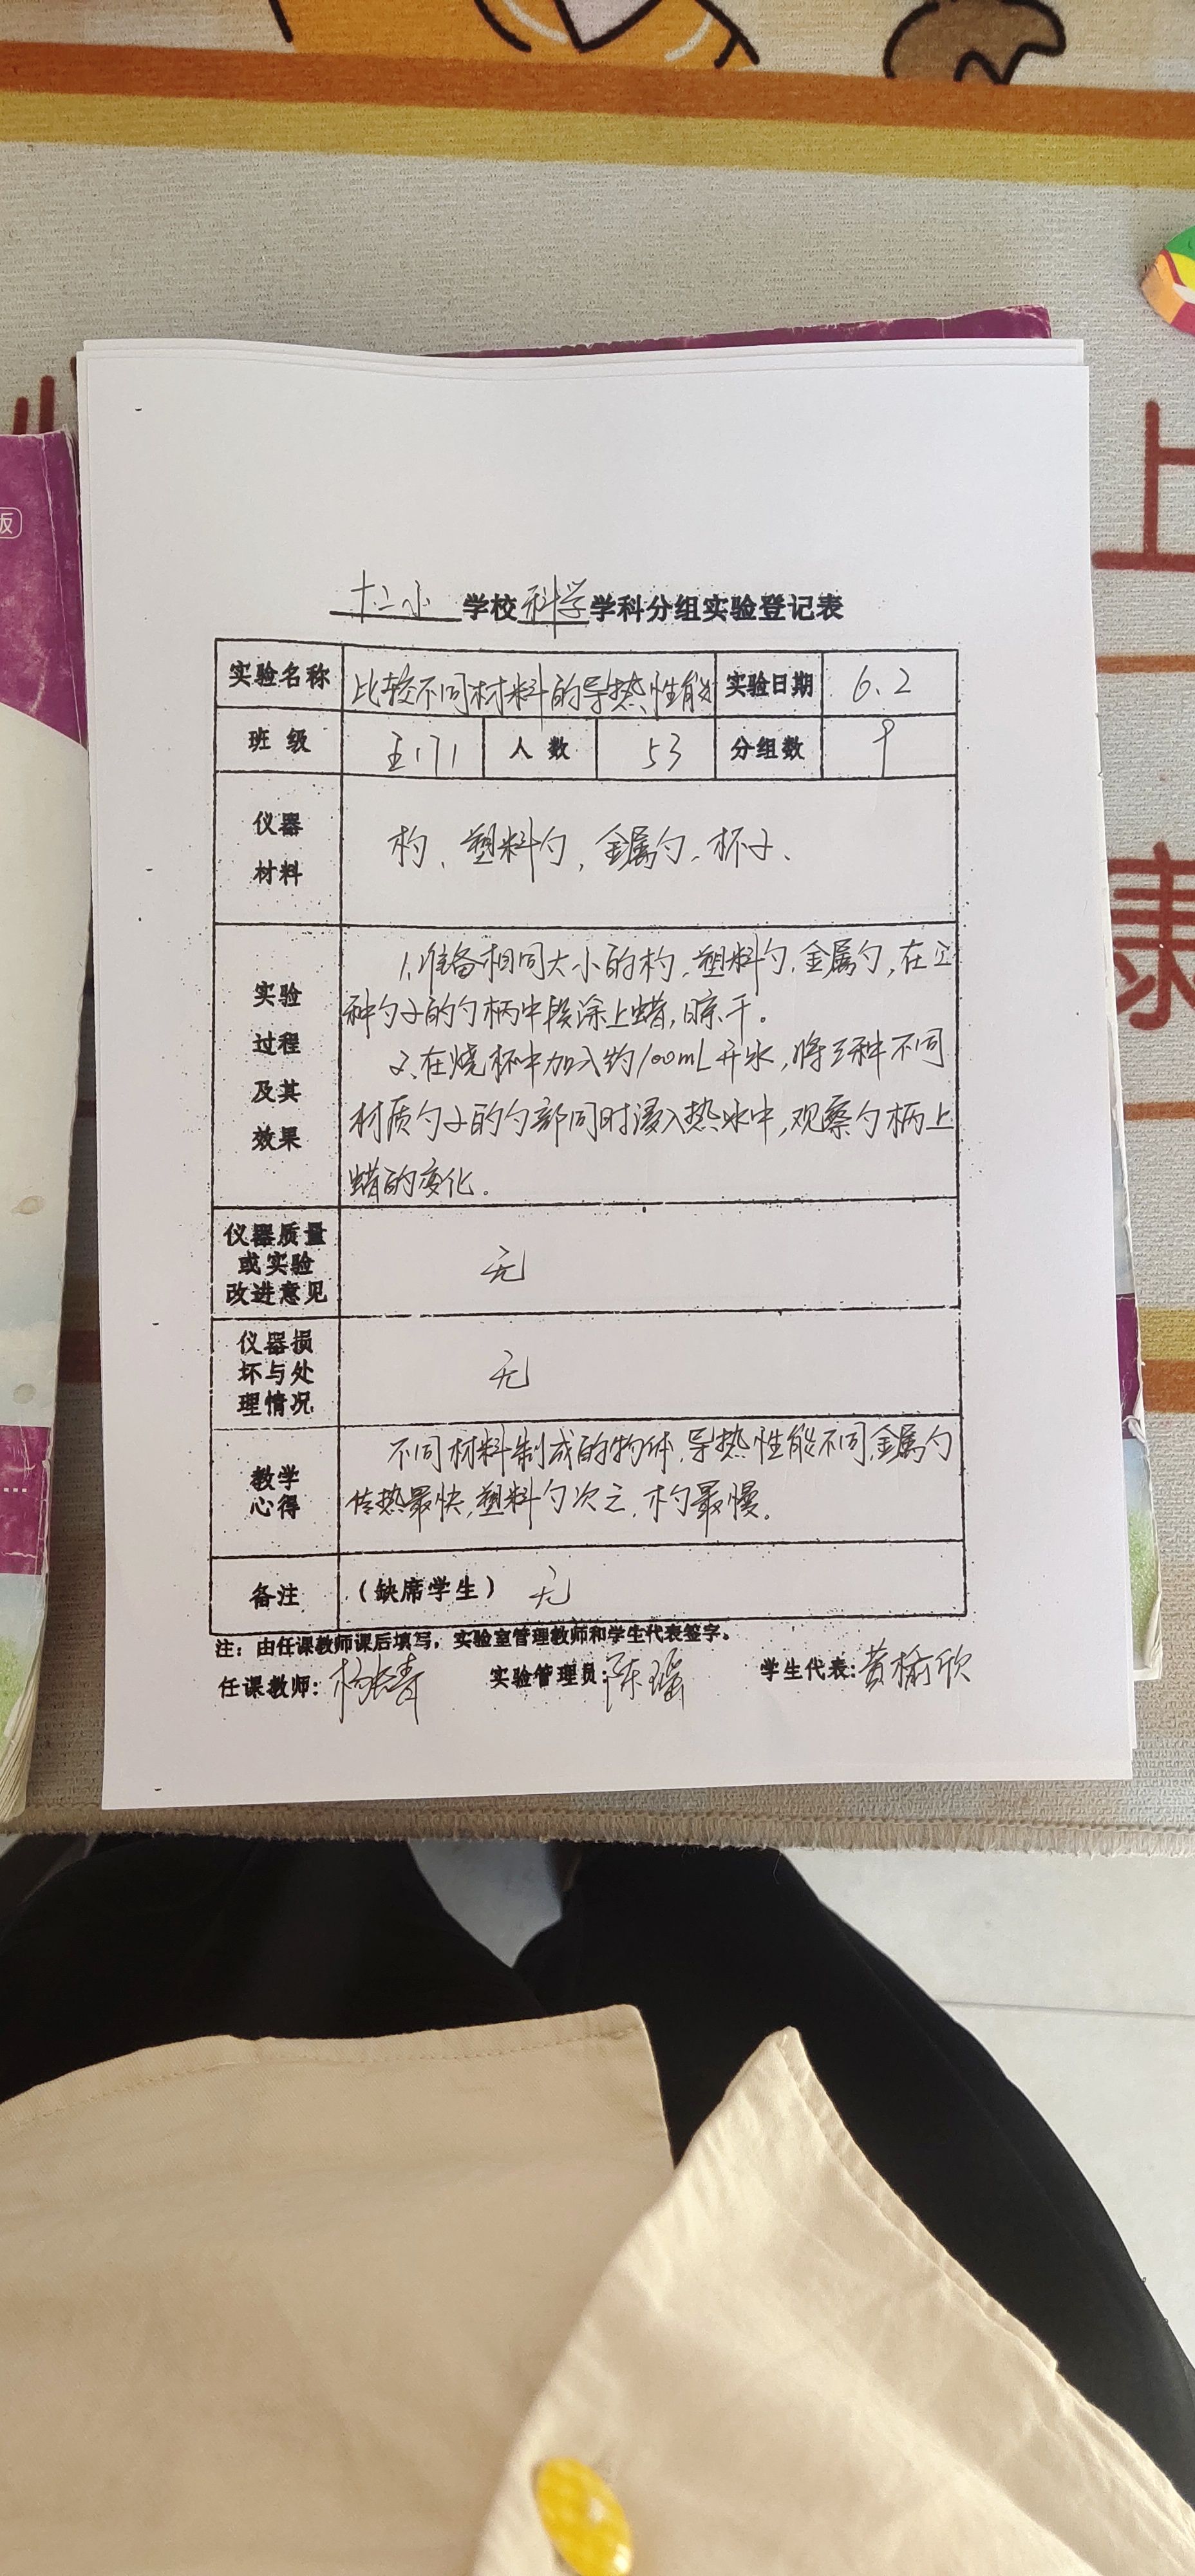 版
上
康
十二小学校科学学科分组实验登记表
实验名称 比较不同材料的导热性能 实验日期 6.2
班级 五(7) 人数 53 分组数 9
仪器
材料
杓、塑料勺,金属勺、杯子、
实验
过程
及其
效果
1.准备相同大小的杓,塑料勺,金属勺,在三
种勺子的勺柄中段涂上蜡,晾干。
2.在烧杯中加入约100mL开水,将三种不同
材质勺子的勺部同时浸入热水中,观察勺柄上
蜡的变化。
仪器质量
或实验
改进意见
无
仪器损
坏与处
理情况
无
教学
心得
不同材料制成的物体,导热性能不同,金属勺
传热最快,塑料勺次之,杓最慢。
备注 (缺席学生) 无
注:由任课教师课后填写,实验室管理教师和学生代表签字。
任课教师:杨长青 实验管理员:陈瑶 学生代表:黄榆欣